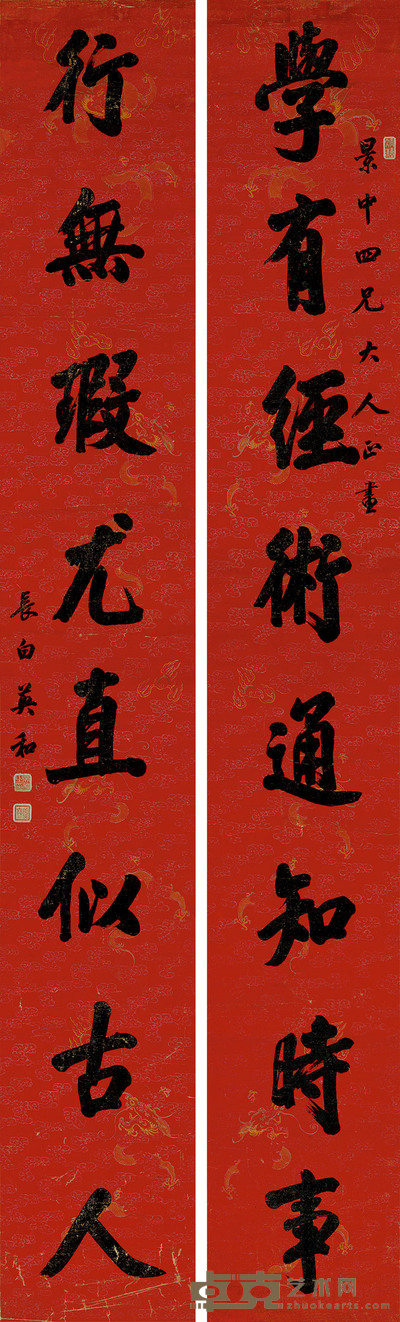 景中四兄大人正畫
學有經術通知時事
行無瑕尤直似古人
長白英和
卓克艺术网
zhuokearts.com